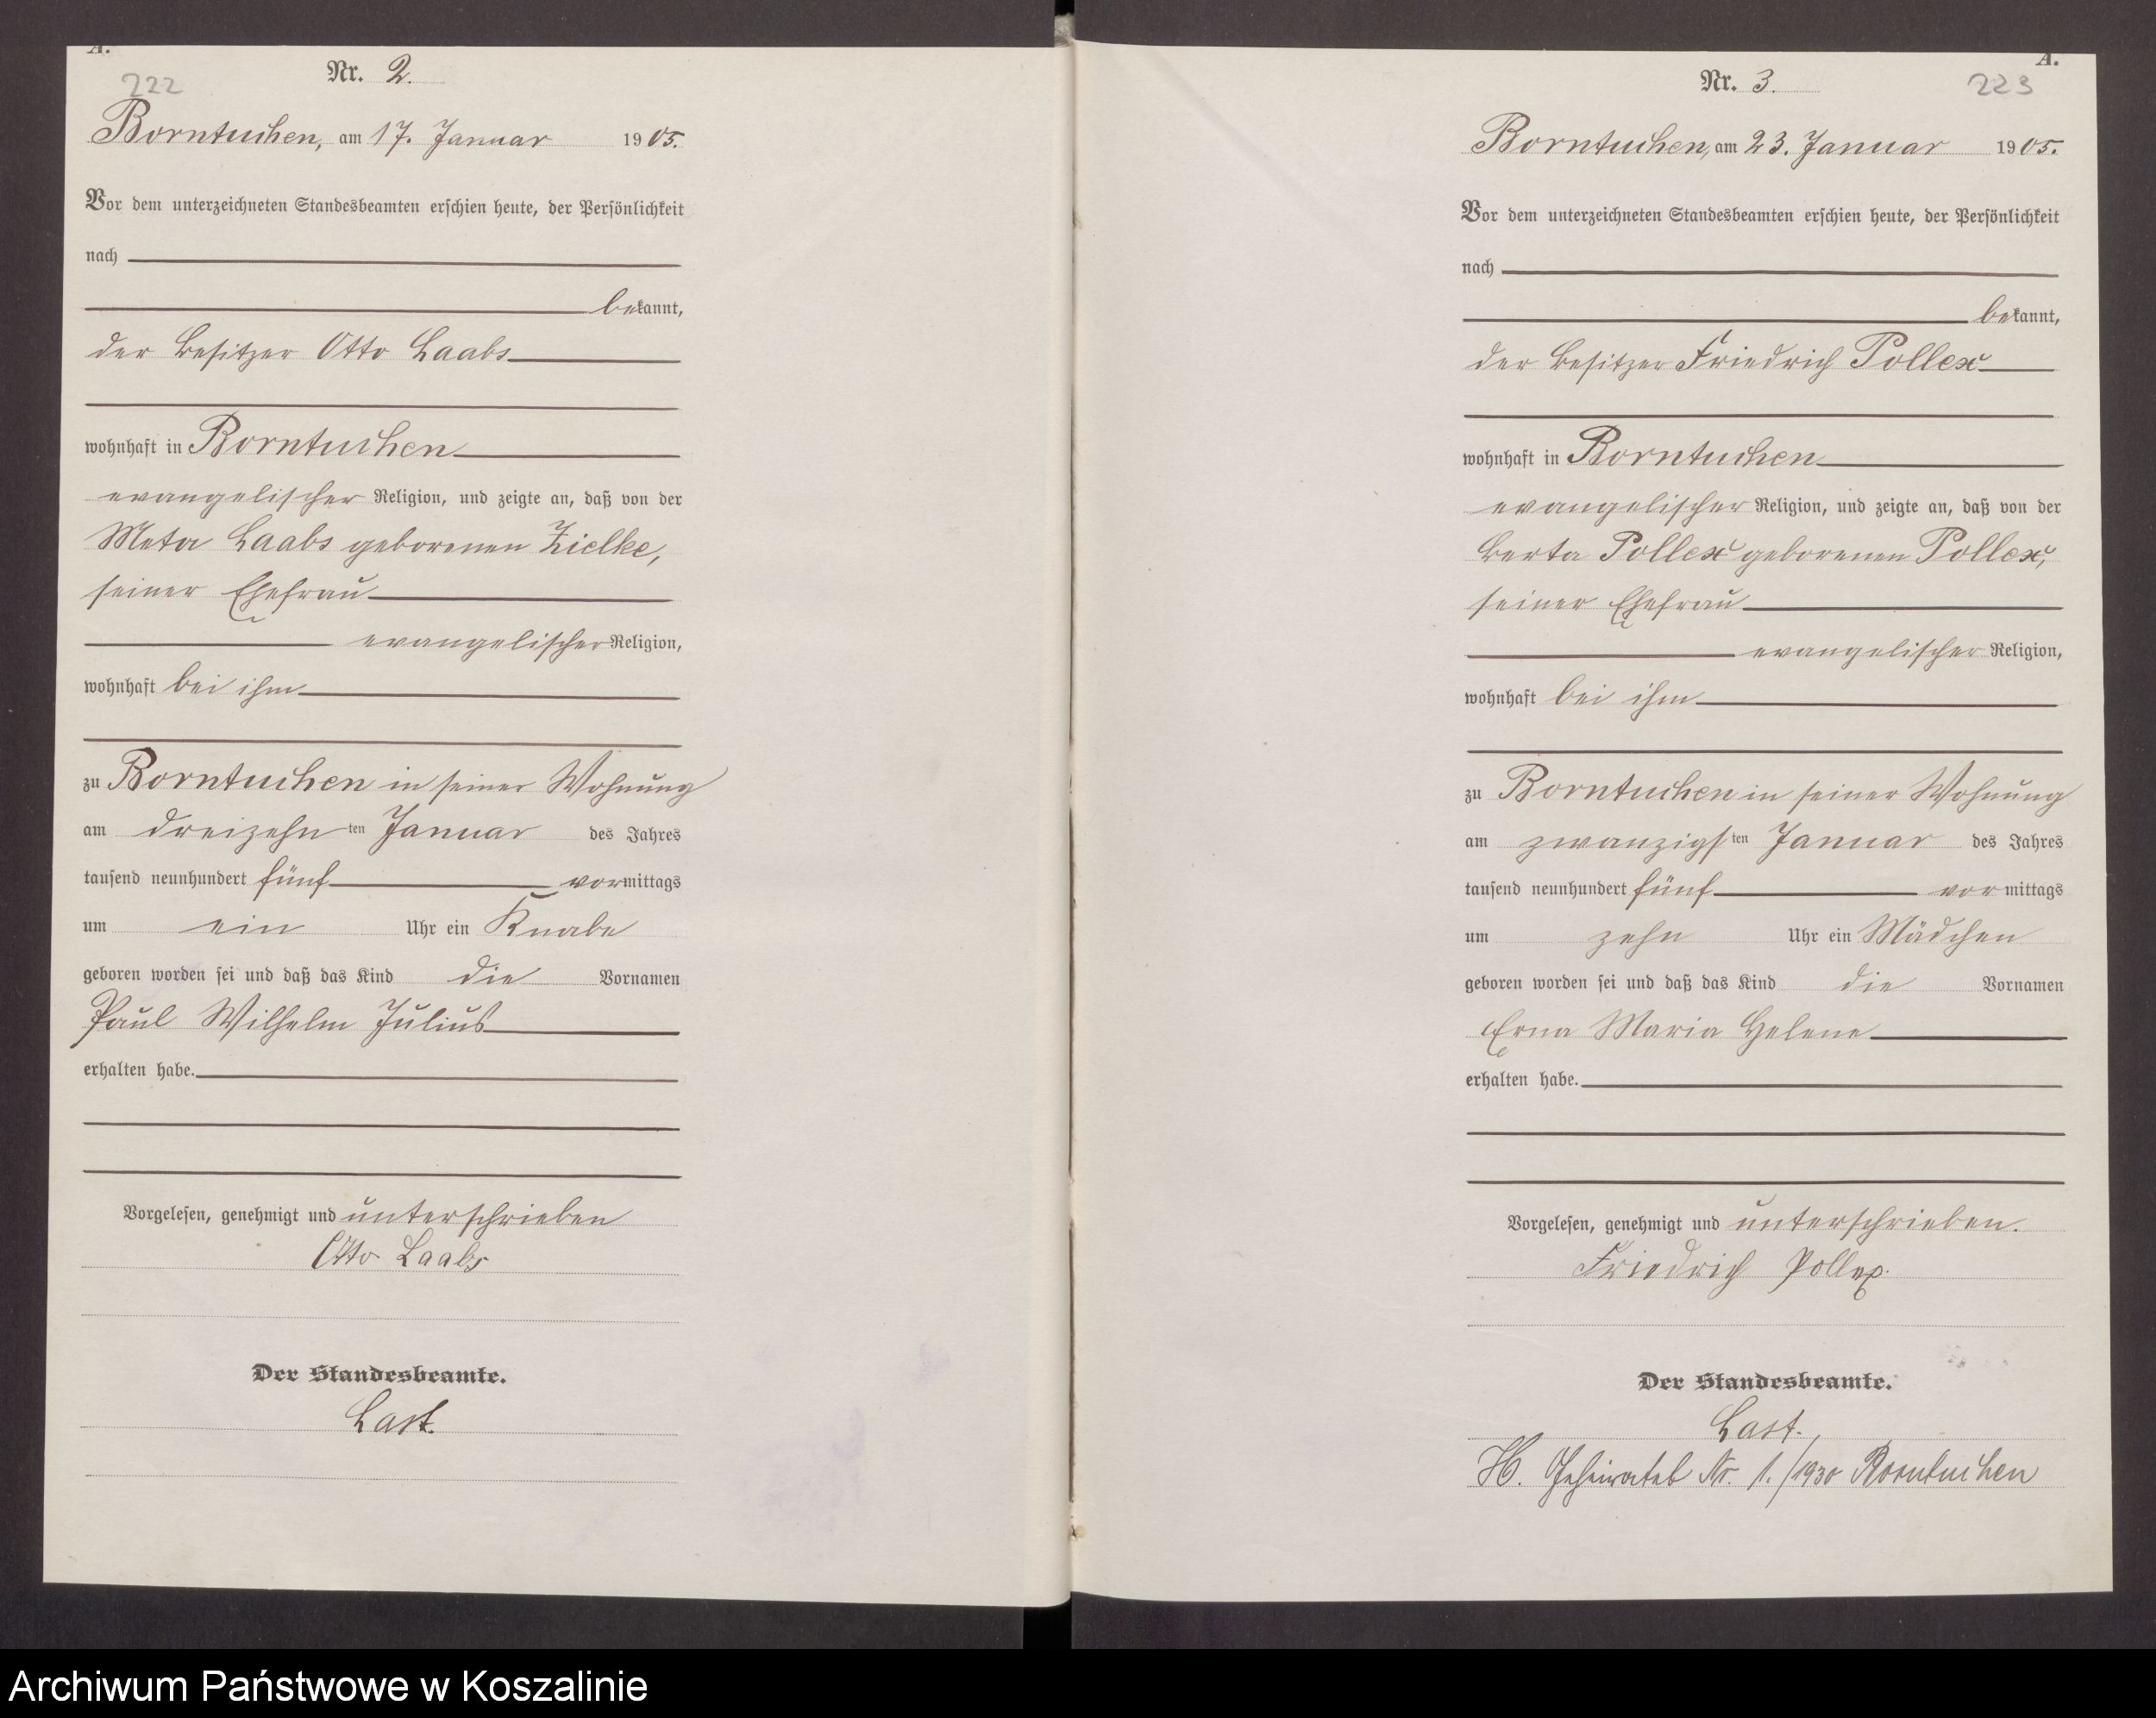 A.
222
Nr. 2.
Borntuchen, am 17. Januar 1905.
Vor dem unterzeichneten Standesbeamten erschien heute, der Persönlichkeit
nach
bekannt,
der Besitzer Otto Laabs
wohnhaft in Borntuchen
evangelischer Religion, und zeigte an, daß von der
Meta Laabs geborenen Zielke,
seiner Ehefrau
evangelischer Religion,
wohnhaft bei ihm
zu Borntuchen in seiner Wohnung
am dreizehnten Januar des Jahres
tausend neunhundert fünf vormittags
um ein Uhr ein Knabe
geboren worden sei und daß das Kind die Vornamen
Paul Wilhelm Julius
erhalten habe.
Vorgelesen, genehmigt und unterschrieben
Otto Laabs
Der Standesbeamte.
Last.
A.
Nr. 3.
223
Borntuchen, am 23. Januar 1905.
Vor dem unterzeichneten Standesbeamten erschien heute, der Persönlichkeit
nach
bekannt,
der Besitzer Friedrich Pollex
wohnhaft in Borntuchen
evangelischer Religion, und zeigte an, daß von der
Berta Pollex geborenen Pollex,
seiner Ehefrau
evangelischer Religion,
wohnhaft bei ihm
zu Borntuchen in seiner Wohnung
am zwanzigsten Januar des Jahres
tausend neunhundert fünf vormittags
um zehn Uhr ein Mädchen
geboren worden sei und daß das Kind die Vornamen
Erna Maria Helene
erhalten habe.
Vorgelesen, genehmigt und unterschrieben.
Friedrich Pollex.
Der Standesbeamte.
Last.
H. Geheiratet Nr. 1./1930 Borntuchen
Archiwum Państwowe w Koszalinie